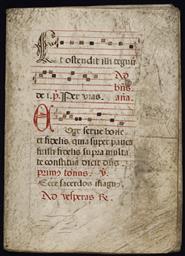 Et ostendit illi regnũ
Ad
de i. p. Per vias. bñs.
aña.
Euge serve bone
et fidelis, quia super pauca
fuisti fidelis supra multa
te constituã dicit dñs.
primus tonus.
Ecce sacerdos magn
Ad vesperas